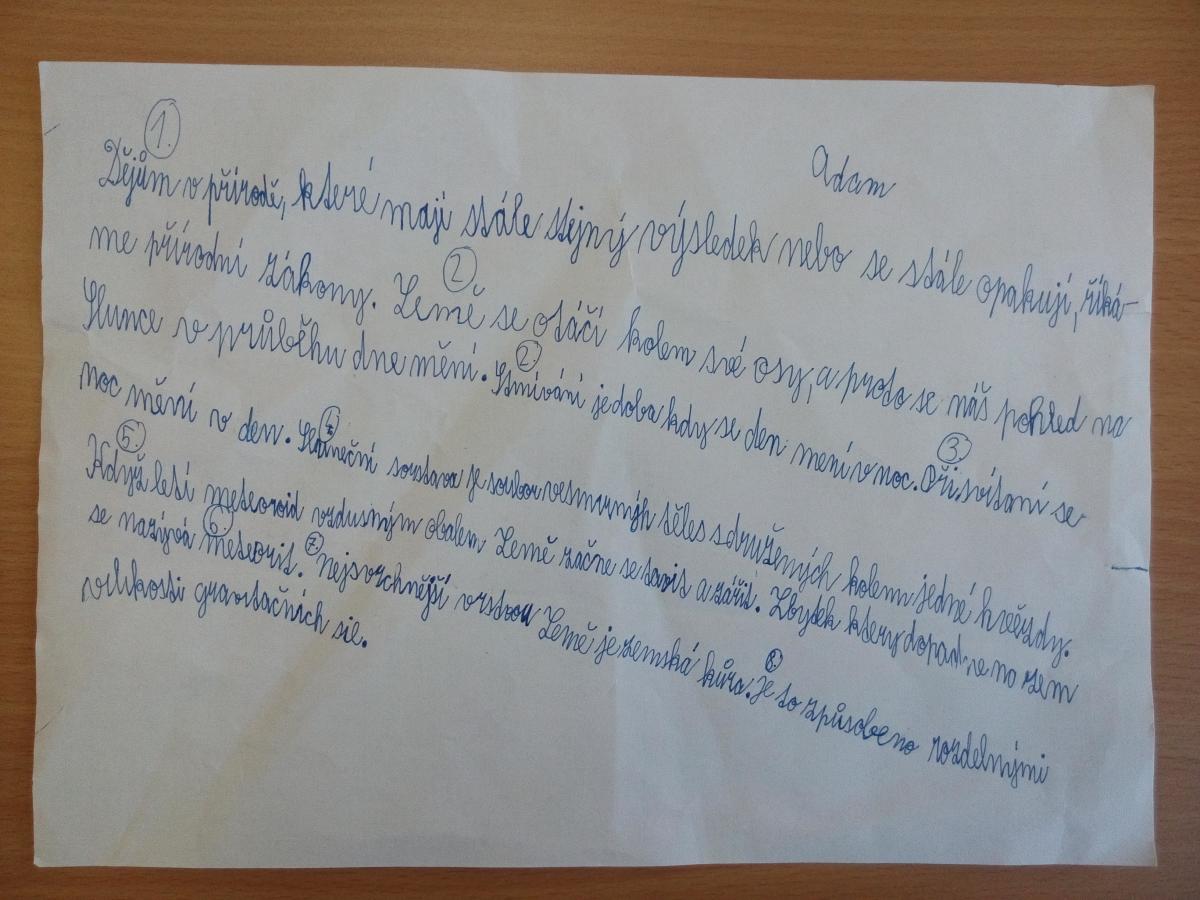 1.
Adam
Dějům v přírodě, které mají stále stejný výsledek nebo se stále opakují, říká-
me přírodní zákony. 2. Země se otáčí kolem své osy, a proto se náš pohled na
Slunce v průběhu dne mění. 2. Stmívání je doba kdy se den mení v noc. 3. Při svítaní se
noc mění v den. 4. Sluneční soustava je soubor vesmrných těles sdružených kolem jedné hvězdy.
5. Když letí meteoroid vzdusným obalem Země začne se tavit a zářit. Zbytek ktery dopadne na zem
se nazývá 6. meteorit. 7. Nejsvrchnější vrstvou Země je zemská kůra. 8. Je to způsobeno rozdelnými
velikosti gravitačních sil.